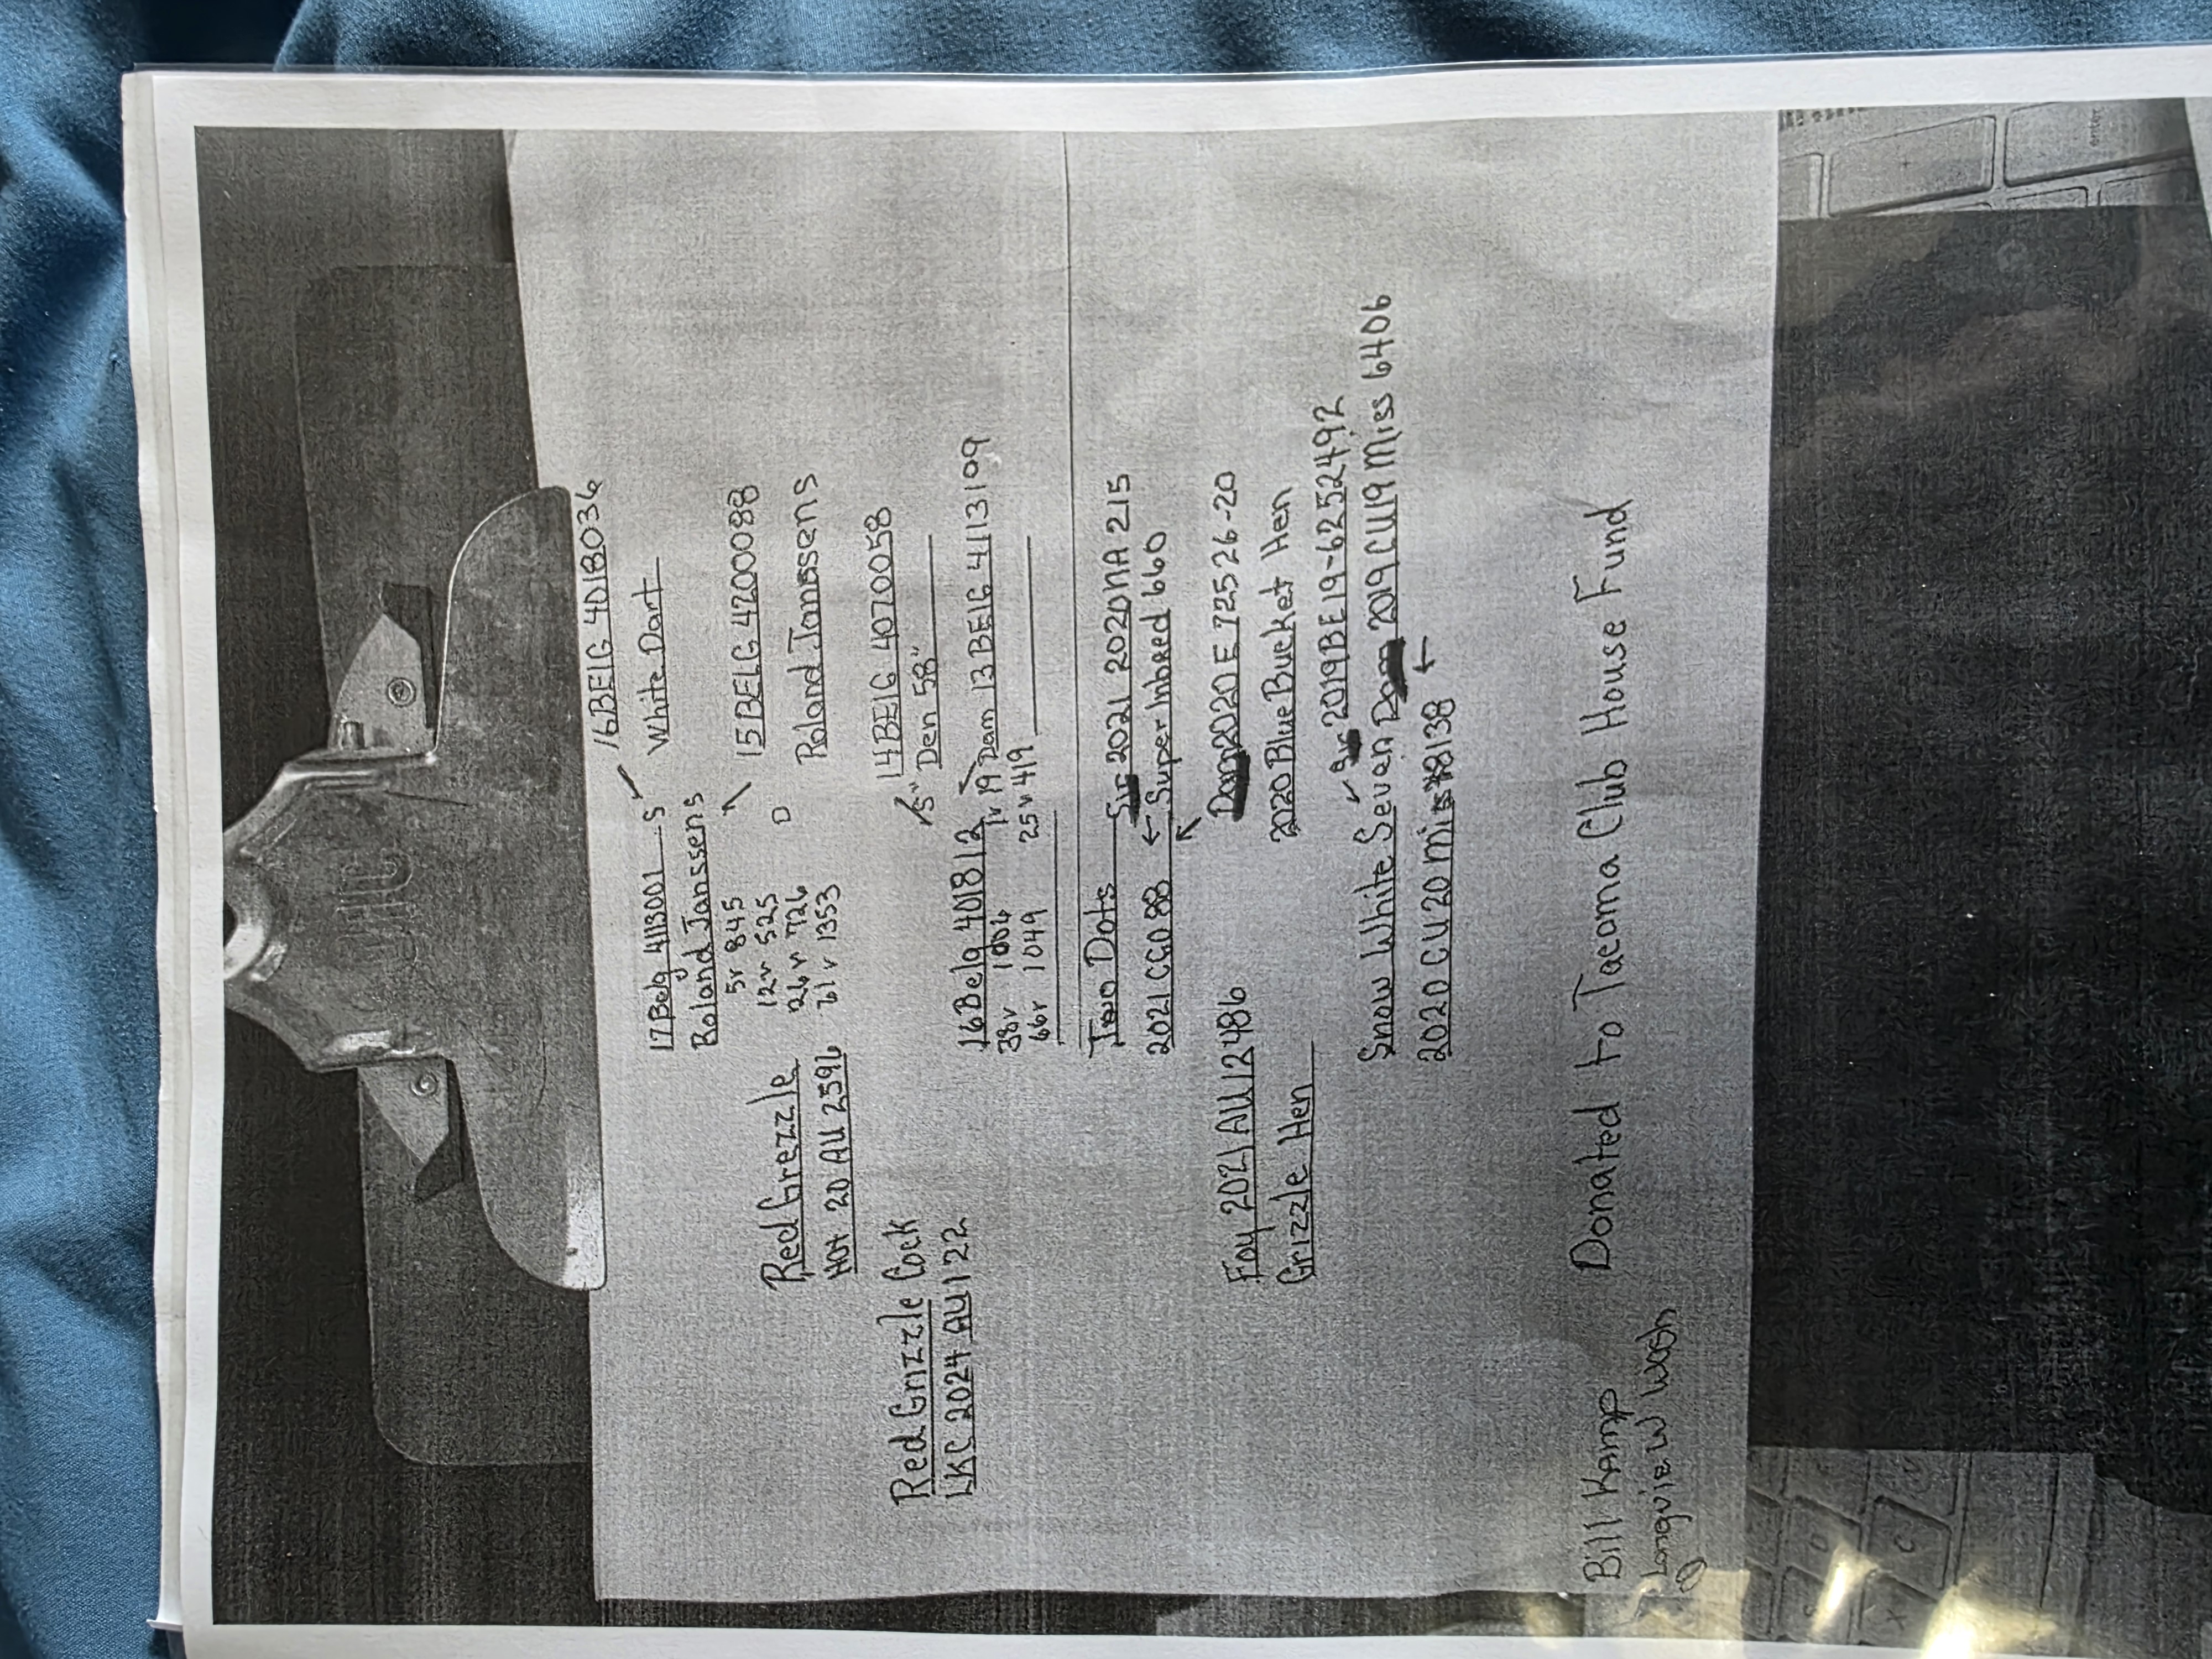 16 BELG 4018036
17 Belg 4113001 S White Dart
Roland Janssens
5v 845 15 BELG 4200088
12v 525
Red Grezzle 26v 726 D Roland Janssens
Hot 20 AU 2596 61v 1353
14 BELG 4070058
Red Grizzle Cock "S" Den 58"
LKC 2024 AU 122 16 Belg 401812 1v 19 Dam 13 BELG 4113109
38v 1006 25v 419
66v 1049
Two Dots Sir 2021 2020 NA 215
2021 CGO 88 Super Inbred 660
Foy 2021 AU 12486 Dam 2020 E 72526-20
Grizzle Hen 2020 Blue Bucket Hen
Sir 2019 BE 19-6252492
Snow White Sevan Dam 2019 CU 19 Miss 6406
2020 CU 20 Miss 8138
Bill Kamp Donated to Tacoma Club House Fund
Longview Wash
enter